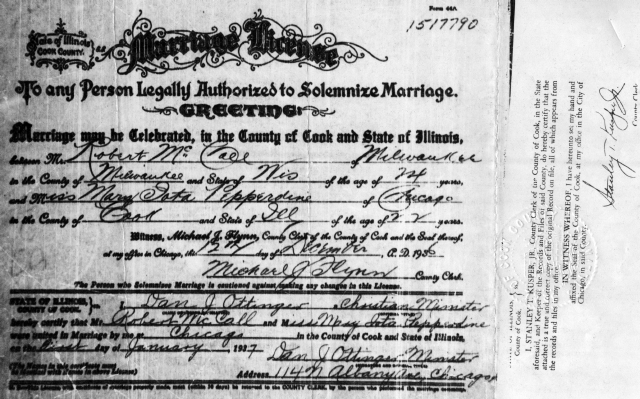 Form 44A
1517790
State of Illinois
COOK COUNTY. ss
Marriage License
To any Person Legally Authorized to Solemnize Marriage.
GREETING:
Marriage may be Celebrated, in the County of Cook and State of Illinois,
between Mr. Robert Mc Call of Milwaukee
in the County of Milwaukee and State of Wis of the age of 24 years.
and Miss Mary Iota Pepperdine of Chicago
in the County of Cook and State of Ill of the age of 22 years.
Witness, Michael J. Flynn, County Clerk of the County of Cook and the Seal thereof,
at my office in Chicago, the December A.D. 19
Michael J Flynn County Clerk.
The Person who Solemnizes Marriage is cautioned against making any changes in this License.
STATE OF ILLINOIS,
COUNTY OF COOK. Dan J Ottinger Christian Minister
certify that Mr. Robert McCall and Miss Mary Iota Pepperdine
were united in Marriage by me at Chicago in the County of Cook and State of Illinois,
on the First day of January 1937
Dan J Ottinger Minister
Address 114 N Albany Ave, Chicago
COUNTY CLERK
County of Cook.
I, STANLEY T. KUSPER, JR., County Clerk of the County of Cook, in the State
aforesaid, and Keeper of the Records and Files of said County, do hereby certify that the
attached is a true and correct copy of the original Record on file, all of which appears from
the records and files in my office.
IN WITNESS WHEREOF, I have hereunto set my hand and
affixed the Seal of the County of Cook, at my office in the City of
Chicago, in said County.
Stanley T. Kusper Jr.
County Clerk